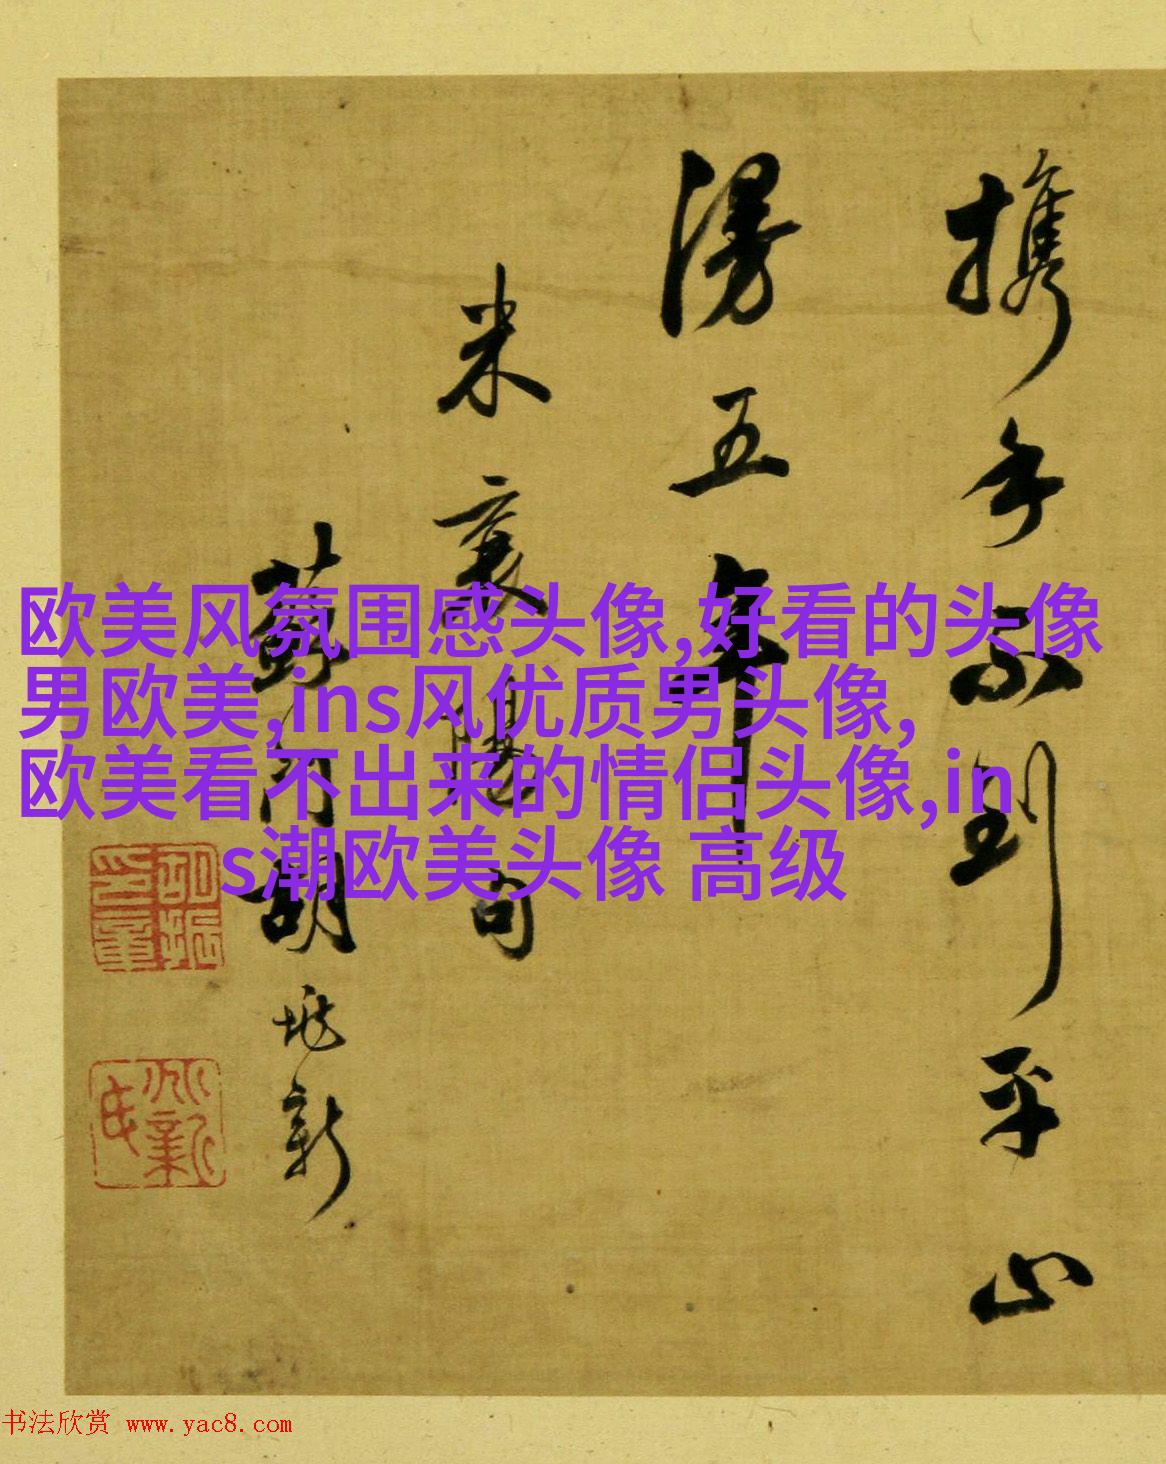 携手不到平山
漫五年
米襄陽句
胡 新
欧美风氛围感头像,好看的头像
男欧美,ins风优质男头像,
欧美看不出来的情侣头像,in
s潮欧美头像 高级
书法欣赏 www.yac8.com